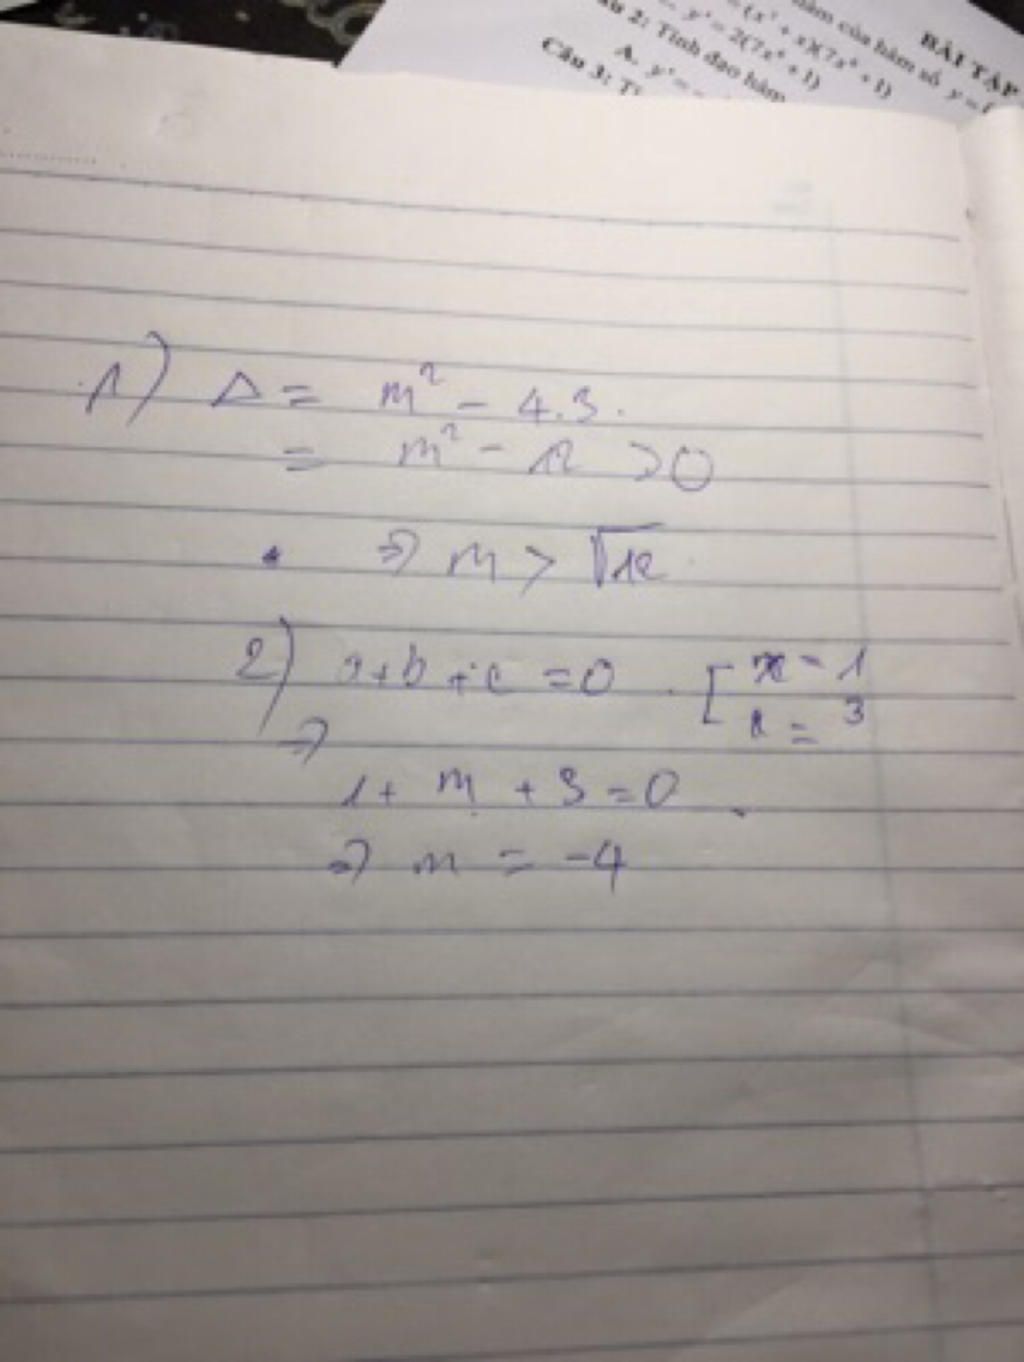 BÀI TẬP
hàm của hàm số y = (
= (x⁷ + x)(7x⁶ + 1)
y' = 2(7x⁶ + 1)
2: Tính đạo hàm
A. y' = -
Câu 3: T
1) Δ = m² - 4.3.
= m² - 12 > 0
⇒ m > √12
2) a + b + c = 0 [ x = 1
x = 3
⇒
1 + m + 3 = 0
⇒ m = -4